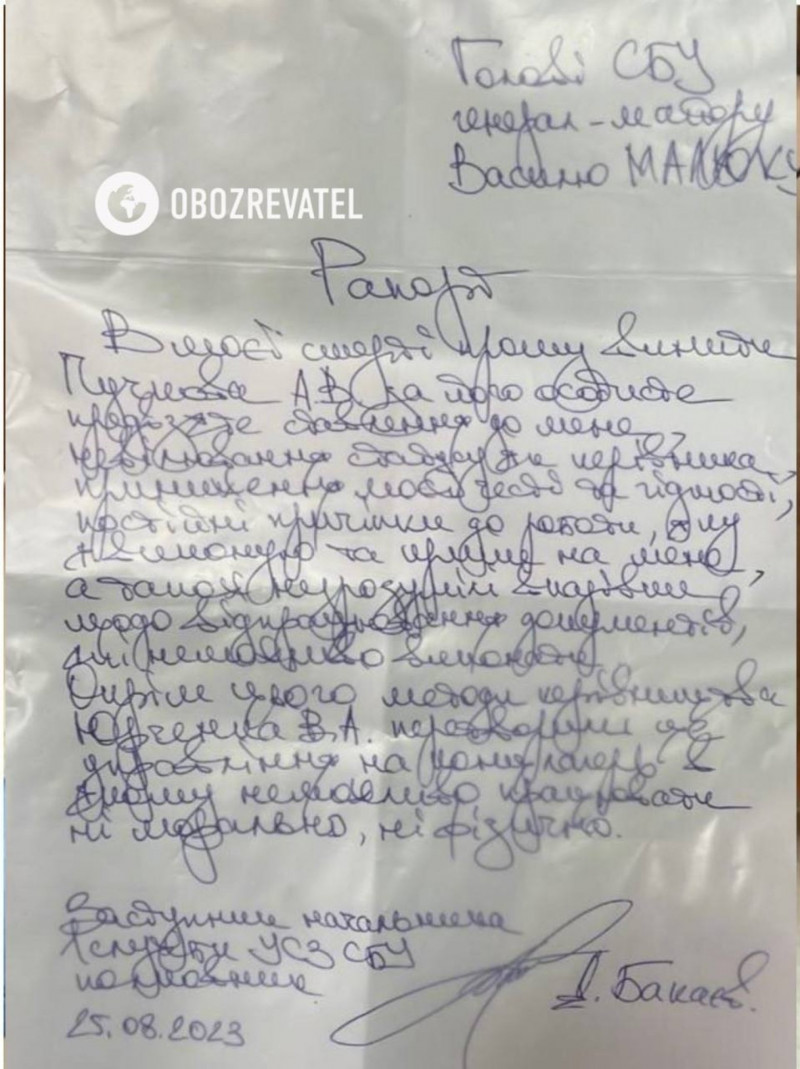 Голові СБУ
генерал-майору
Василю МАЛЮКУ
OBOZREVATEL
Рапорт
В моєї смерті прошу винити
А.В. за його особисте
предвзяте ставлення до мене,
нівілювання як керівника,
приниження моєї честі та гідності,
постійні причіпки до роботи, яку
я виконую та крики на мене,
а також незрозумілі вказівки
щодо відпрацювання документів,
які неможливо виконати.
Окрім цього методи керівництва
Юрченка В.А. перетворили
управління на концлагерь в
якому неможливо працювати
ні морально, ні фізично.
Заступник начальника
1 служби УСЗ СБУ
полковник
25.08.2023
Бакаєв.